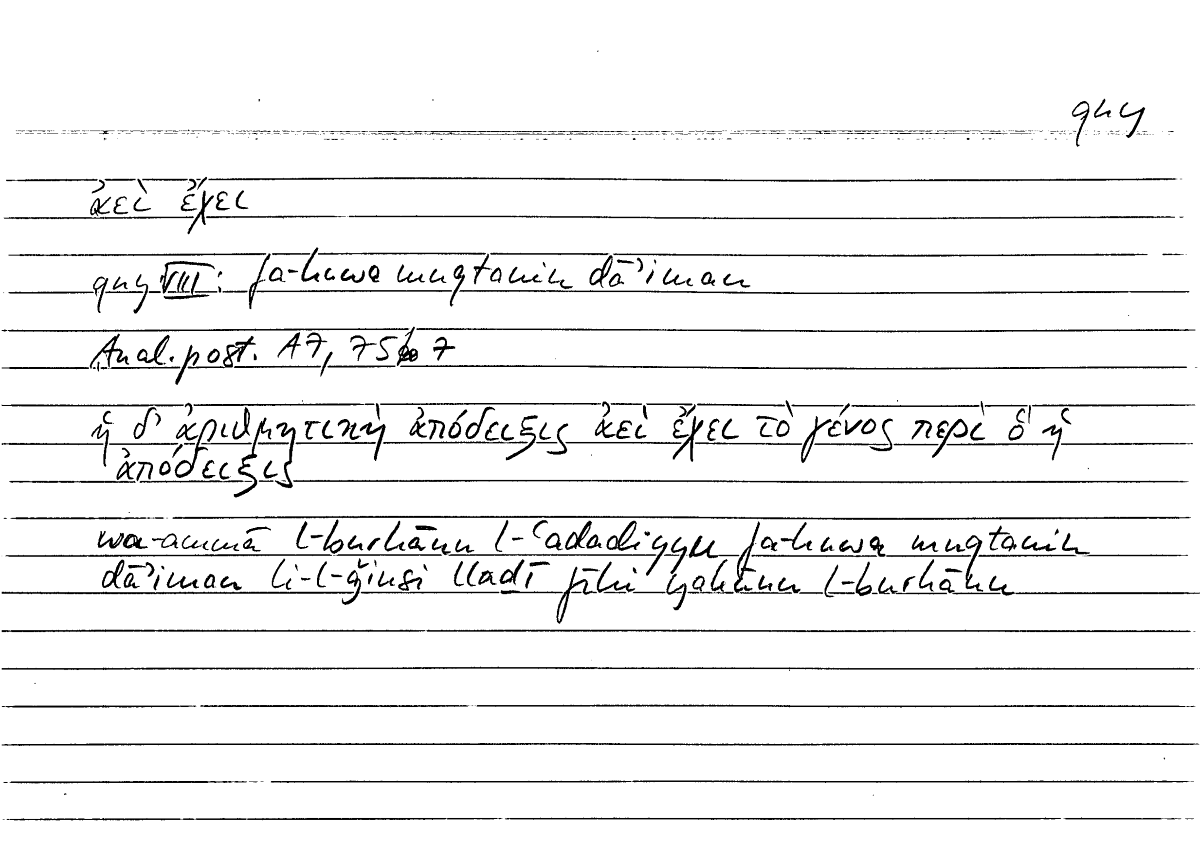 qny
ἀεὶ ἔχει
qny VIII: fa-huwa muqtanin dāʾiman
Anal. post. A7, 75b 7
ἡ δ' ἀριθμητικὴ ἀπόδειξις ἀεὶ ἔχει τὸ γένος περὶ ὃ ἡ
ἀπόδειξις
wa-ammā l-burhānu l-ʿadadiyyu fa-huwa muqtanin
dāʾiman li-l-ǧinsi lladī fīhi yakūnu l-burhānu